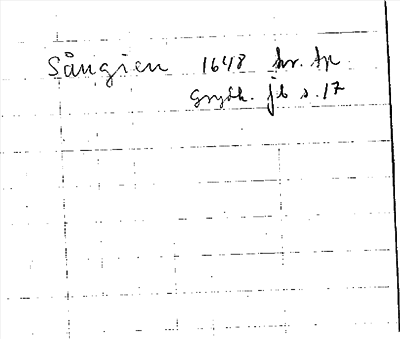 Sångien 1648 hr. tp
Grythh. jb s. 17